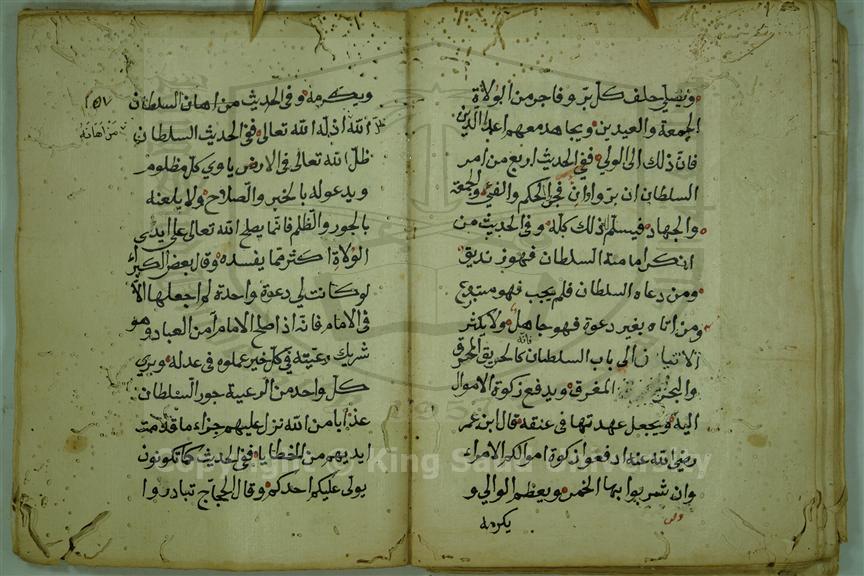 ويصلي خلف كل بر وفاجر من الولاة
الجمعة والعيدين ويجاهد معهم اعداالدين
فان ذلك الى الولي ففي الحديث اربع من امر
السلطان ان بروا وان فجر الحكم والفي والجمعة
والجهاد فيسلم ذلك كله وفي الحديث من
انكر امامة السلطان فهو زنديق
ومن دعاه السلطان فلم يجب فهو مبتدع
ومن اتاه بغير دعوة فهو جاهل ولا يكثر
الاتيان الى باب السلطان فانه كالحريق المحرق
والبحر المغرق ويدفع زكوة الاموال
اليه ويجعل عهدتها في عنقه قال ابن عمر
رضى الله عنه ادفعوا زكوة اموالكم الامراء
وان شربوا بها الخمر ويعظم الوالي و
يكرمه
ويكرمه وفي الحديث من اهان السلطان
١٥٧
الله اذله الله تعالى وفي الحديث السلطان
ظل
من اهانه
ظل الله تعالى في الارض ياوي كل مظلوم
ويدعوله بالخير والصلاح ولا يلعنه
بالجور والظلم فانما يصلح الله تعالى على ايدي
الولاة اكثر مما يفسده وقال بعض الكبراء
لو كانت لي دعوة واحدة لم اجعلها الا
في الامام فانه اذ اصلح الامام أمن العباد وهو
شريك رعيته في كل خير عملوه في عدله ويرى
كل واحد من الرعية جور السلطان
عذابا من الله نزل عليهم جزاء ما قدمت
ايديهم من الخطايا ففي الحديث كما تكونون
يولى عليكم احدكم وقال الحجاج تبادروا
Copyright © King Saud University